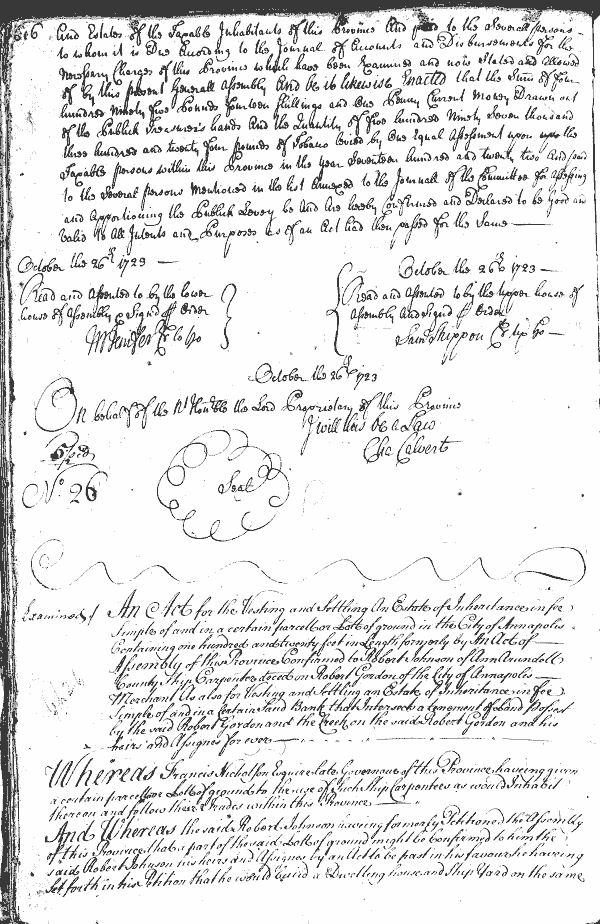 And Estates of the Taxable Inhabitants of this Province And paid to the Severall persons
to whom it is Due According to the Journal of Accounts and Disbursements for the
Necessary Charges of this Province which have been Examined and now Stated and allowed
of by this present Generall Assembly And be it likewise Enacted that the Sum of four
hundred Ninety five Pounds fourteen Shillings and One Penny Current Money Drawn out
of the Publick Treasurer's hands And the Quantity of Five hundred Ninety Seven thousand
three hundred and twenty four pounds of Tobacco Levied by One Equal Assessment upon the
Taxable persons within this Province in the year Seventeen hundred and twenty two And paid
to the Several persons Mentioned in the list Annexed to the Journall of the Committee for Assessing
and Apportioning the Publick Levey be And Are hereby Confirmed and Declared to be Good and
Valid to All Intents and Purposes as if an Act had been passed for the Same
October the 26th 1723
Read and Assented to by the lower
house of Assembly & Signd p Order
Mj Jenifer Cl lo ho
October the 26th 1723
Read and Assented to by the upper house of
Assembly And Signd p Order
Saml Skippon Cl up ho
October the 26th 1723
On behalf of the Rt Honble the Lord Proprietary of this Province
I will this be a Law
Cha Calvert
No 26
Seal
Examined An Act for the Vesting and Settling An Estate of Inheritance in fee
Simple of and in a certain parcell or Lott of ground in the City of Annapolis
Containing one hundred and twenty feet in Length formerly by An Act of
Assembly of this Province Confirmed to Robert Johnson of Ann Arundell
County Ship Carpenter deced on Robert Gordon of the City of Annapolis
Merchant As also for Vesting and Settling an Estate of Inheritance in Fee
Simple of and in a Certain Sand Bank that Intersects a Longment of Land Possest
by the said Robert Gordon and the Creek on the said Robert Gordon and his
heirs and Assignes for ever
Whereas Francis Nicholson Esquire late Governour of this Province haveing given
a certain parcell or Lott of ground to the use of such Ship Carpenters as would Inhabit
thereon and follow their Trades within this Province
And Whereas the said Robert Johnson haveing formerly Petitioned the Assembly
of this Province that a part of the said Lott of ground might be Confirmed to him the
said Robert Johnson his heirs and Assignes by an Act to be past in his favour he haveing
Set forth in his Petition that he would build a Dwelling house and Ship Yard on the same